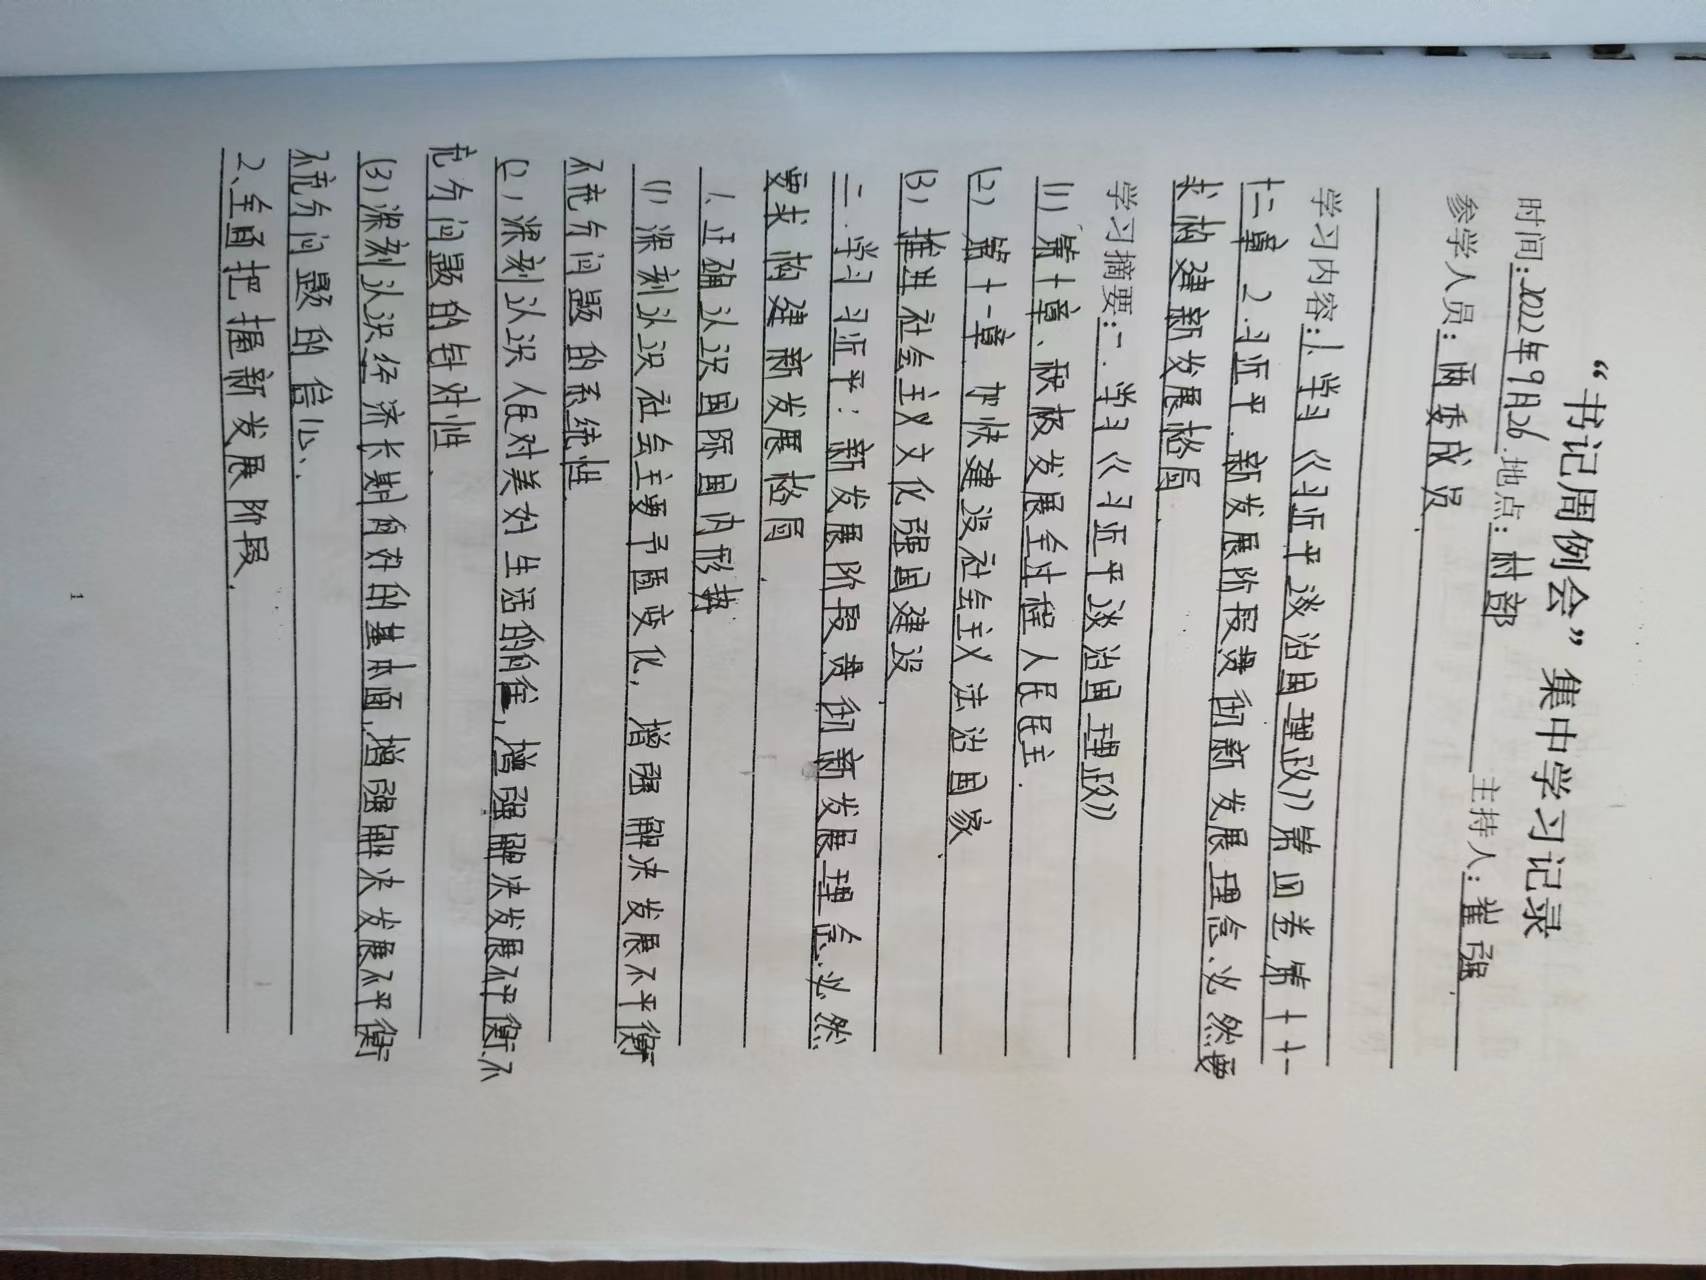 “书记周例会”集中学习记录
时间:2022年9月26.地点:村部 主持人:崔强.
参学人员:两委成员.
学习内容:1.学习《习近平谈治国理政》第四卷,第十十一
十二章 2.习近平.新发展阶段贯彻新发展理念、必然要
求构建新发展格局.
学习摘要:一.学习《习近平谈治国理政》
(1)第十章、积极发展全过程人民民主.
(2)第十一章 加快建设社会主义法治国家、
(3)推进社会主义文化强国建设
二.学习习近平:新发展阶段贯彻新发展理念.必然
要求构建新发展格局.
1.正确认识国际国内形势
(1)深刻认识社会主要矛盾变化,增强解决发展不平衡
不充分问题的系统性.
(2)深刻认识人民对美好生活的向往,增强解决发展不平衡、不
充分问题的针对性.
(3)深刻认识经济长期向好的基本面,增强解决发展不平衡
不充分问题的信心、
2、全面把握新发展阶段.
1